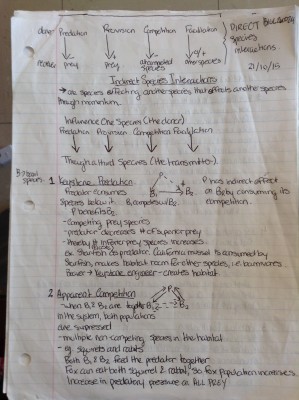 donor Predation Provision Competition Facilitation
DIRECT
Species
Interactions
21/10/15
receiver prey prey species other species
Indirect Species Interactions
→ one species effecting another species that effects another species
though momentum.
Influence One Species (the donor)
Predation Provision Competition Facilitation
Through a third Species (the transmitter)
1 Keystone Predation
Predator consumes
Species below it. B, competes w/ B2
P benefits B2.
P has indirect affect
on B2 by consuming its
competition.
- competing prey species
- predator decreases # of superior prey
- thereby # inferior prey species increases
ex. Starfish as predator. California mussel is consumed by
Starfish, makes habitat room for other species, i.e. barnacles
Beaver → Keystone engineer - creates habitat
2 Apparent Competition
- when B1 & B2 are together
in the system, both populations
are suppressed
- multiple non-competing species in the habitat
- eg. squirrels and rabbits
Both B1 & B2 feed the predator together
Fox can eat both squirrel & rabbit, so fox population increases.
Increase in predatory pressure on ALL PREY